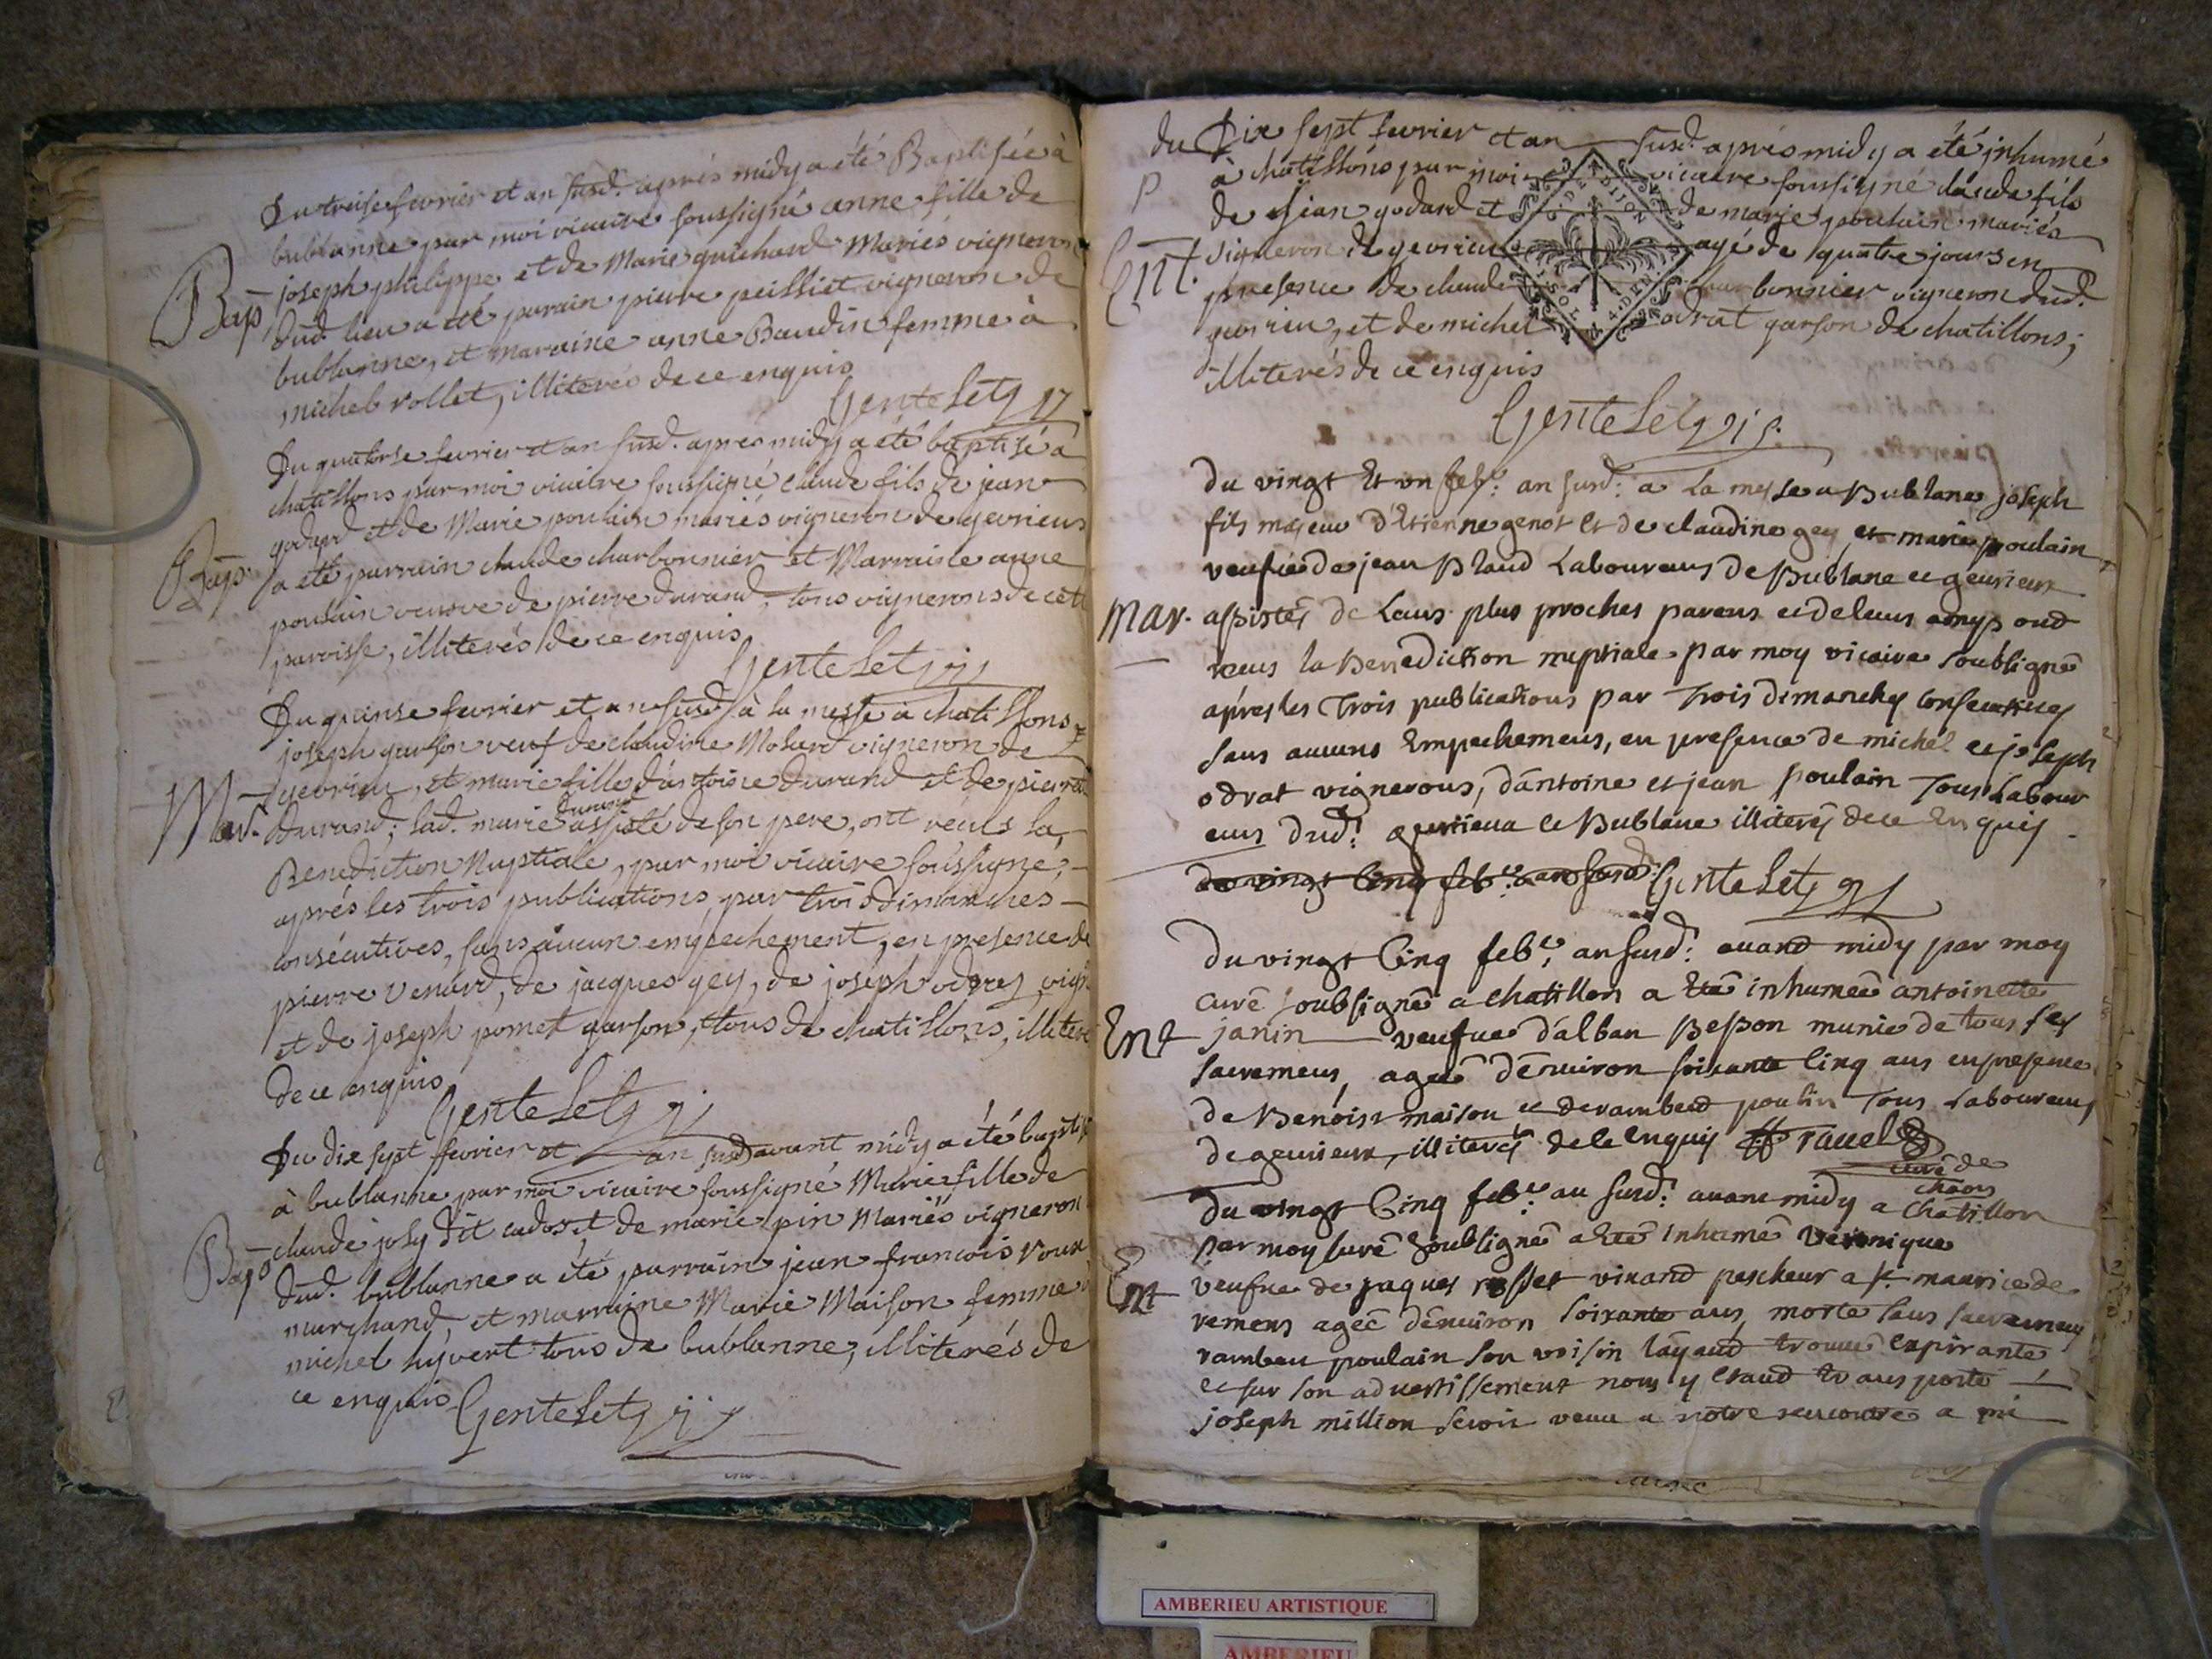 Du treise fevrier et an susd. après midy a été Baptisée à
bublanne par moi vicaire soussigné anne fille de
Bap joseph philippe et de Marie guichard Mariés vigneron
dud. lieu a été parrain pierre peissiet vigneron de
bublanne, et maraine anne Baudin femme à
michel rollet, illiterés de ce enquis
GenteLet
Du quatorse fevrier et an susd. après midy a été baptisé à
chatillons par moi vicaire soussigné claude fils de jean
godard et de Marie poulain mariés vigneron de gevrieux
Bap. a été parrain claude charbonnier et Marraine anne
poulain veusve de pierre durand, tous vignerons de cete
paroisse, illiterés de ce enquis
GenteLet
Du quinse fevrier et an susd. à la messe à chatillons
joseph garson veuf de claudine Molard vigneron de
gevrieu, et marie fille d'antoine durand et de pierrete
Mar. durand; lad. marie durand assisté de son pere, ont reçus la
Benediction Nuptiale, par moi vicaire soussigné,
après les trois publications par trois dimanches
consécutives, sans aucun empechement, en presence de
pierre Venard, de jacques gey, de joseph odrez vign
et de joseph pomet garson, tous de chatillons, illiteré
de ce enquis
GenteLet
Du dix sept fevrier et an susd avant midy a été baptis
à bublanne par moi vicaire soussigné Marie fille de
Bap claude joly dit cados et de marie pin Mariés vigneron
dud. bublanne a été parrain jean francois roux
marchand, et marraine Marie Maison femme à
michel huvert tous de bublanne, illiterés de
ce enquis GenteLet
du Dix sept fevrier et an susd. après midy a été inhumé
à chatillons par moi vicaire soussigné claude fils
de jean godard et de marie poulain mariés
Ent. vigneron de gevrieu agé de quatre jours en
presence de claude charbonnier vigneron dud.
gevrieu, et de michel odrat garson de chatillons;
illiterés de ce enquis
GenteLet
du vingt et un feb: an susd: a la messe a Bublane joseph
fils majeur d'Etienne genot et de claudine gey et marie poulain
veufve de jean pland Laboureurs de Bublane et geurieux
Mar. assistés de Leurs plus proches parens et de leurs amys ond
receus la Benediction nuptiale par moy vicaire soubsigné
apres les Trois publications par Trois dimanches consecutives
sans aucuns Empechemens, en presence de michel et joseph
odrat vignerons, d'antoine et jean poulain Tous Labour
eurs dud: geurieux et Bublane illiterés de ce Enquis
du vingt cinq feb: an susd: GenteLet
Du vingt cinq feb: an susd: auand midy par moy
curé soubsigné a chatillon a eté inhumée antoinette
Ent janin veufve d'alban Besson munie de tous ses
sacremens, agée d'enuiron soixante cinq ans en presence
de Benoist maison et de rambeid poulin Tous Laboureurs
de geurieux, illiterés de ce enquis rauel
curé de
chaons
Du vingt cinq feb: an susd: auant midy a Chatillon
par moy curé soubsigné a eté inhumé Veronique
Ent veufve de jaques rosset vivand pescheur a st. maurice de
remens agée d'enuiron soixante ans, morte sans sacremens
rambeu poulain son voisin layand trouué expirante
et sur son aduertissement nous y etand transporté
joseph million seroit venu a notre rencontre a mi
AMBERIEU ARTISTIQUE
AMBERIEU